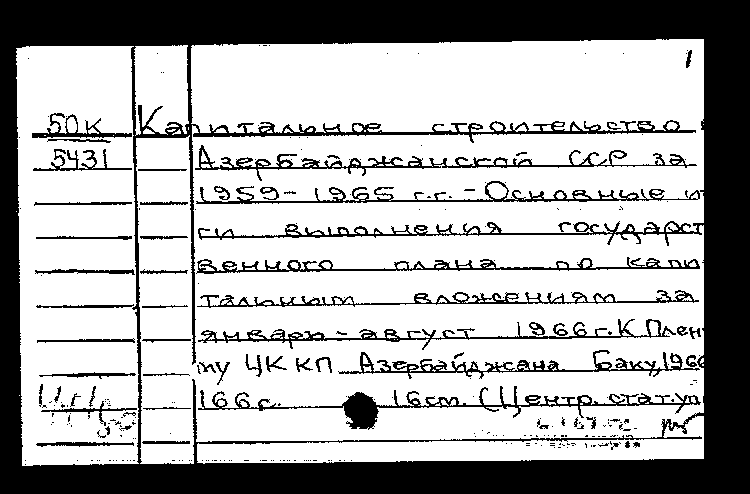 1
50к Капитальное строительство
5431 Азербайджанской ССР за
1959-1965 г.г. - Основные ит
ги выполнения государст
венного плана по капи
тальным вложениям за
январь-август 1966 г. К Плен
му ЦК КП Азербайджана. Баку, 1966
166 с. 16 см. (Центр. стат. уп